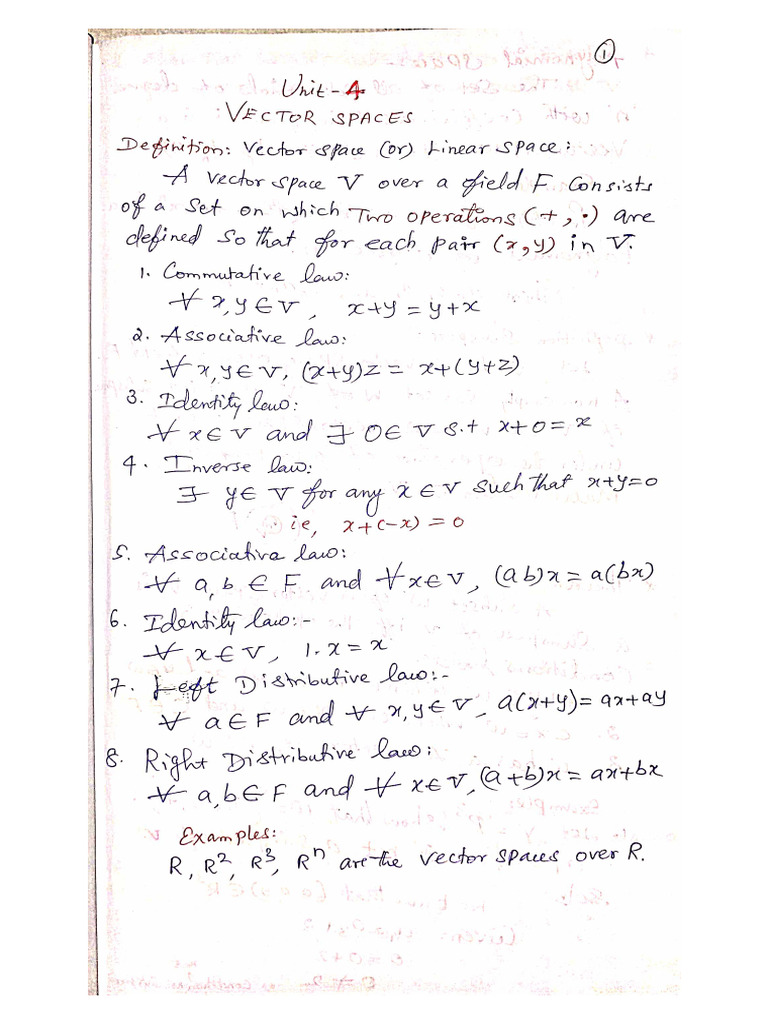 1
Unit-4
VECTOR SPACES
Definition: Vector space (or) Linear space:
A vector space V over a field F consists
of a set on which Two operations (+, ·) are
defined so that for each pair (x,y) in V.
1. Commutative law:
∀ x,y ∈ V, x+y = y+x
2. Associative law:
∀ x,y ∈ V, (x+y)z = x+(y+z)
3. Identity law:
∀ x ∈ V and ∃ 0 ∈ V s.t, x+0 = x
4. Inverse law:
∃ y ∈ V for any x ∈ V such that x+y=0
ie, x+(-x) = 0
5. Associative law:
∀ a,b ∈ F and ∀ x ∈ V, (ab)x = a(bx)
6. Identity law:-
∀ x ∈ V, 1.x = x
7. Left Distributive law:-
∀ a ∈ F and ∀ x,y ∈ V, a(x+y) = ax+ay
8. Right Distributive law:
∀ a,b ∈ F and ∀ x ∈ V, (a+b)x = ax+bx
Examples:
R, R², R³, Rⁿ are the vector spaces over R.